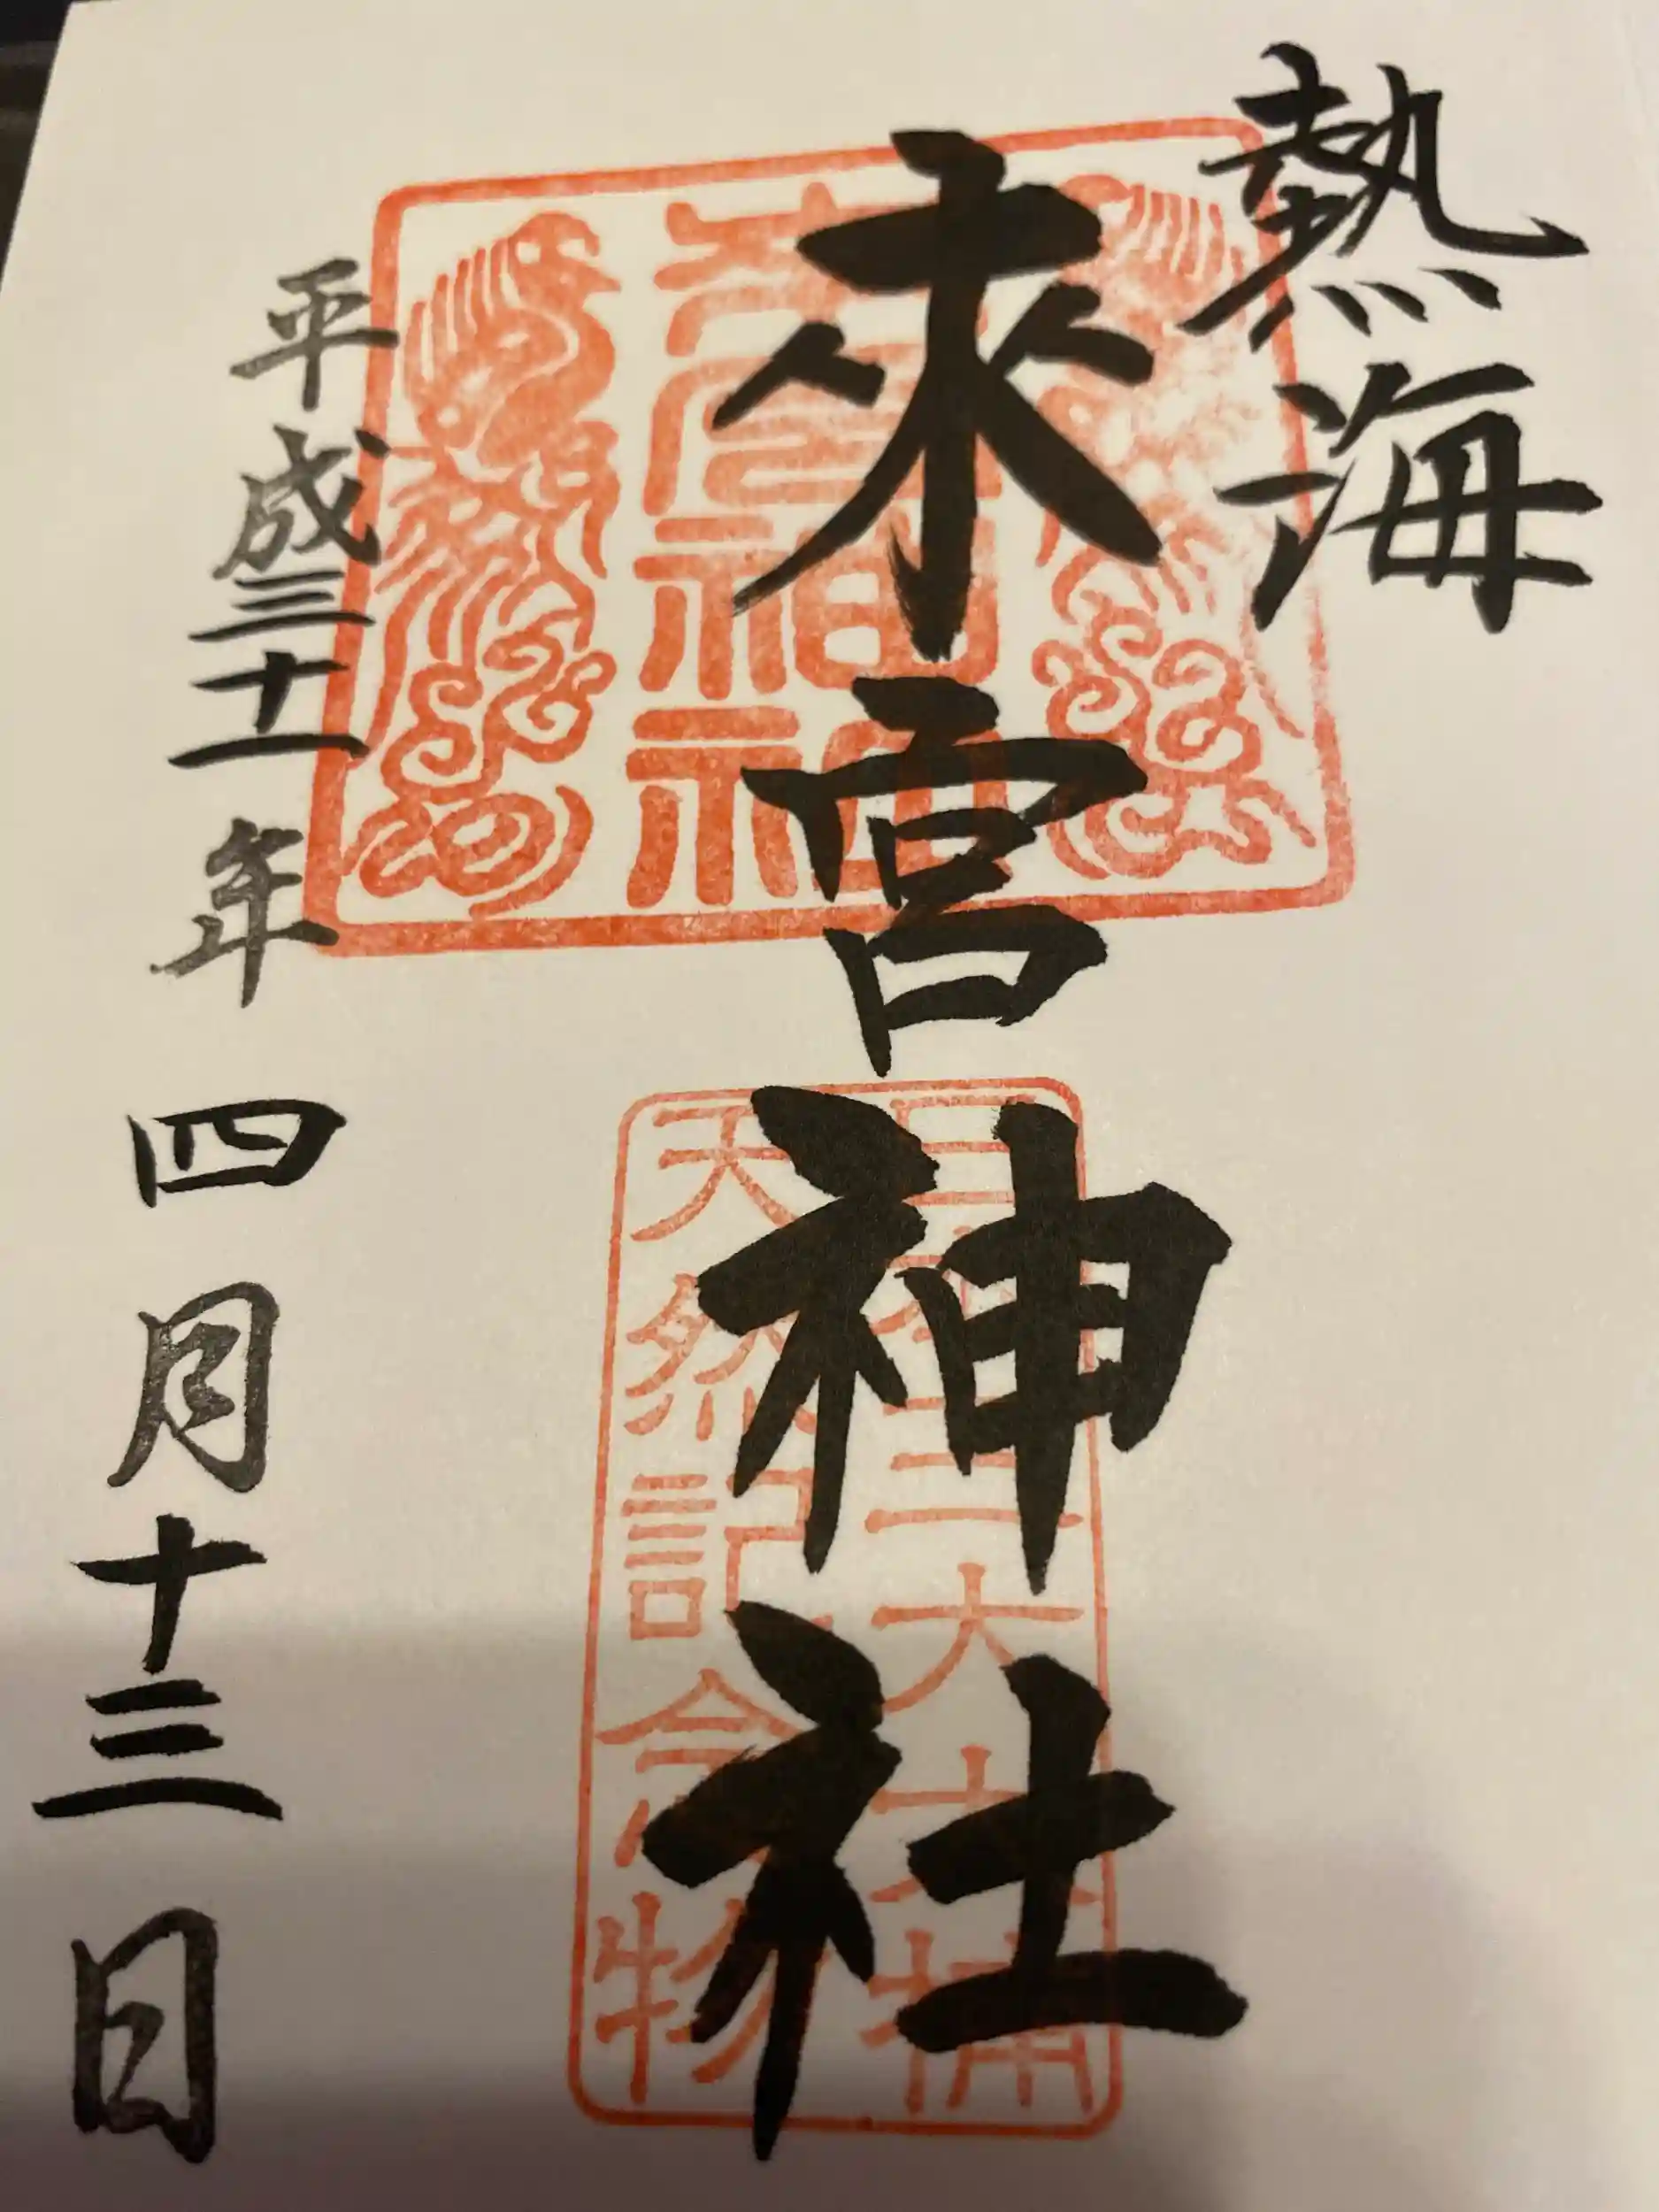 熱海
來宮神社
天然記念物
平成三十一年四月十三日